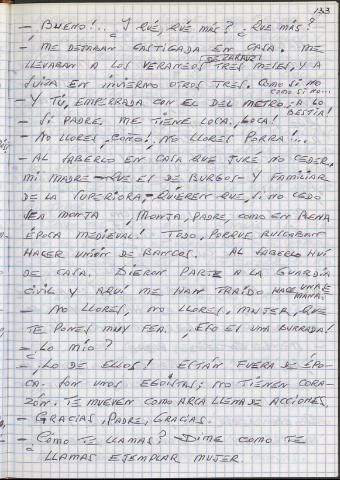 133
- ¡BUENO!.. ¿Y QUÉ, QUÉ MÁS? ¿QUE MÁS?
- ME DEJABAN CASTIGADA EN CASA. ME
LLEVABAN A LOS VERANEOS DE ZARAUZ TRES MESES, Y A
SUIZA EN INVIERNO OTROS TRES. COMO SI NO
COMO SI NO...
- Y TÚ, EMPERRADA CON EL DEL METRO, A LO
BESTIA!
- SI PADRE, ME TIENE LOCA, ¡LOCA!
- NO LLORES, ¡COÑO!, ¡NO LLORES PORRA!...
- AL SABERLO EN CASA QUE JURÉ NO CEDER,
MI MADRE - QUE ES DE BURGOS - Y FAMILIAR
DE LA SUPERIORA, - QUIEREN QUE, SI NO CEDO
SEA MONJA, ¡MONJA, PADRE, COMO EN PLENA
ÉPOCA MEDIEVAL! TODO, PORQUE BUSCABAN
HACER UNIÓN DE BANCOS. AL SABERLO HUÍ
DE CASA. DIERON PARTE A LA GUARDIA
CIVIL Y AQUÍ ME HAN TRAIDO HACE UNA SE
MANA.
- NO LLORES, NO LLORES, MUJER, QUE
TE PONES MUY FEA. ¡ESO ES UNA BURRADA!
- ¿LO MÍO?
- ¡LO DE ELLOS! ESTÁN FUERA DE ÉPO-
CA. SON UNOS EGOÍSTAS; NO TIENEN CORA-
ZÓN. TE MUEVEN COMO ARCA LLENA DE ACCIONES.
- GRACIAS, PADRE, GRACIAS.
- ¿COMO TE LLAMAS? - DIME COMO TE
LLAMAS EJEMPLAR MUJER.